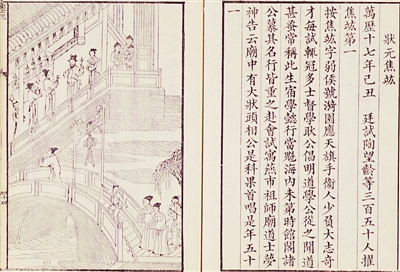 狀元焦竑
萬歷十七年己丑　廷試陶望齡等三百五十人擢
焦竑第一
按焦竑字弱侯號漪園應天旗手衞人少負大志奇
才每試輒冠多士督學耿公倡明道學公從之開道
甚蚤常稱此生宿學懿行當魁海內未第時館閣諸
公慕其名行皆重之赴會試寓燕市祖師廟道士夢
神告云廟中有大狀頭相公是科果首唱是年五十
一